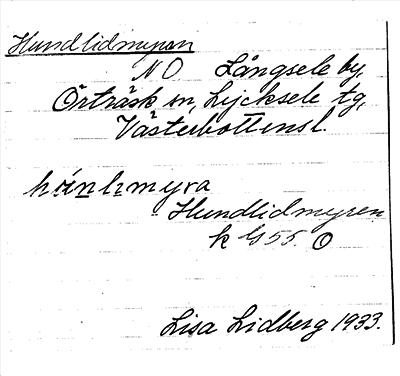 Hundlidmyran
NO Långsele by,
Örträsk sn, Lycksele tg,
Västerbottensl.
Hundlidmyren
k 55. O
Lisa Lidberg 1933.